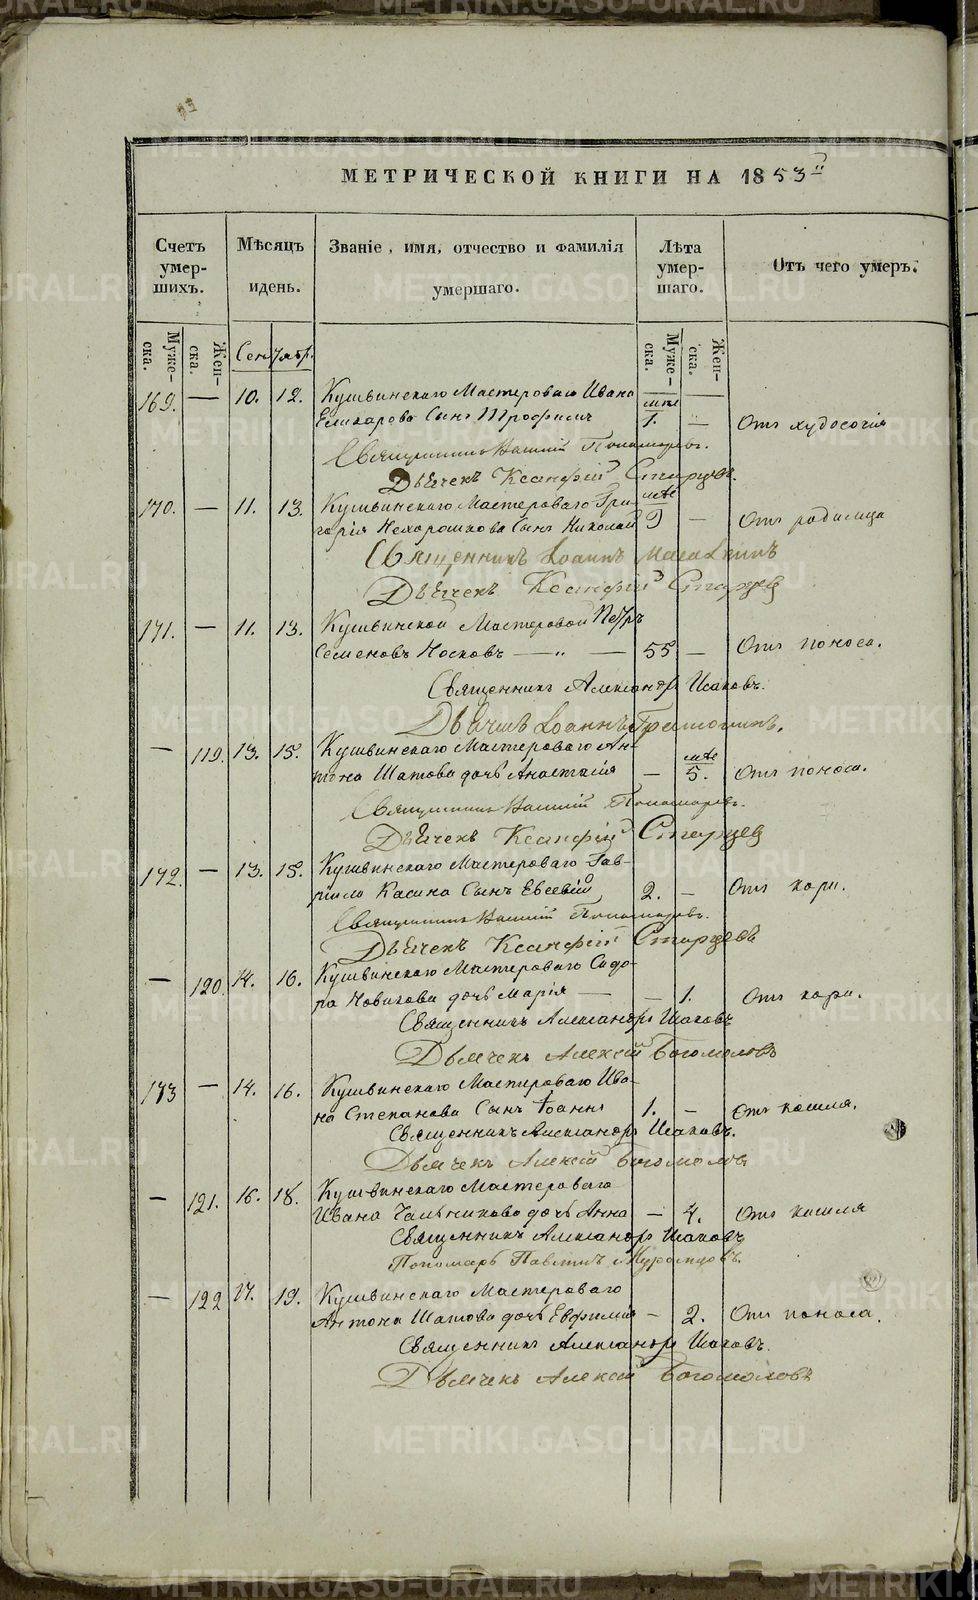 МЕТРИЧЕСКОЙ КНИГИ НА 1853
Счетъ умер- шихъ.
Мѣсяцъ идень.
Званіе, имя, отчество и фамилія умершаго.
Лѣта умер- шаго.
Отъ чего умеръ.
Муже- ска.
Жен- ска.
Сентябр.
Муже- ска.
Жен- ска.
169. — 10. 12. Кушвинскаго Мастероваго Ивана
Елизарова Сынъ Трофимъ 1. — Отъ худосочія
Священникъ Пономаревъ.
Дьячекъ Ксенофій Старцевъ.
170. — 11. 13. Кушвинскаго Мастероваго Гри-
горія Нехорошкова Сынъ Николай — Отъ родимца
Священникъ Іоаннъ
Дьячекъ Ксенофій Старцев
171. — 11. 13. Кушвинской Мастеровой Петръ
Семеновъ Носковъ — „ — 55 — Отъ поноса.
Священникъ Александръ Исаковъ.
Дьячекъ Іоаннъ
— 119. 13. 15. Кушвинскаго Мастероваго Ан-
тона Шатова дочь Анастасія — 5. Отъ поноса.
Священникъ Пономаревъ.
Дьячекъ Ксенофій Старцев
172. — 13. 15. Кушвинскаго Мастероваго Гав-
риила Касина Сынъ Евсевій 2. — Отъ кори.
Священникъ Пономаревъ.
Дьячекъ Ксенофій Старцевъ
— 120. 14. 16. Кушвинскаго Мастероваго Сидо-
ра Новикова дочь Марія — — 1. Отъ кори.
Священникъ Александръ Исаковъ
Дьячекъ Алексѣй Богомоловъ
173 — 14. 16. Кушвинскаго Мастероваго Ива-
на Степанова Сынъ Іоаннъ 1. — Отъ кашля.
Священникъ Александръ Исаковъ.
Дьячекъ Алексѣй Богомоловъ
— 121. 16. 18. Кушвинскаго Мастероваго
Ивана дочь Анна — 4. Отъ кашля
Священникъ Александръ Исаковъ
Пономарь Павлинъ Муромцовъ.
— 122 17. 19. Кушвинскаго Мастероваго
Антона Шатова дочь Евфимія — 2. Отъ поноса.
Священникъ Александръ Исаковъ.
Дьячекъ Алексѣй Богомоловъ
METRIKI.GASO-URAL.RU